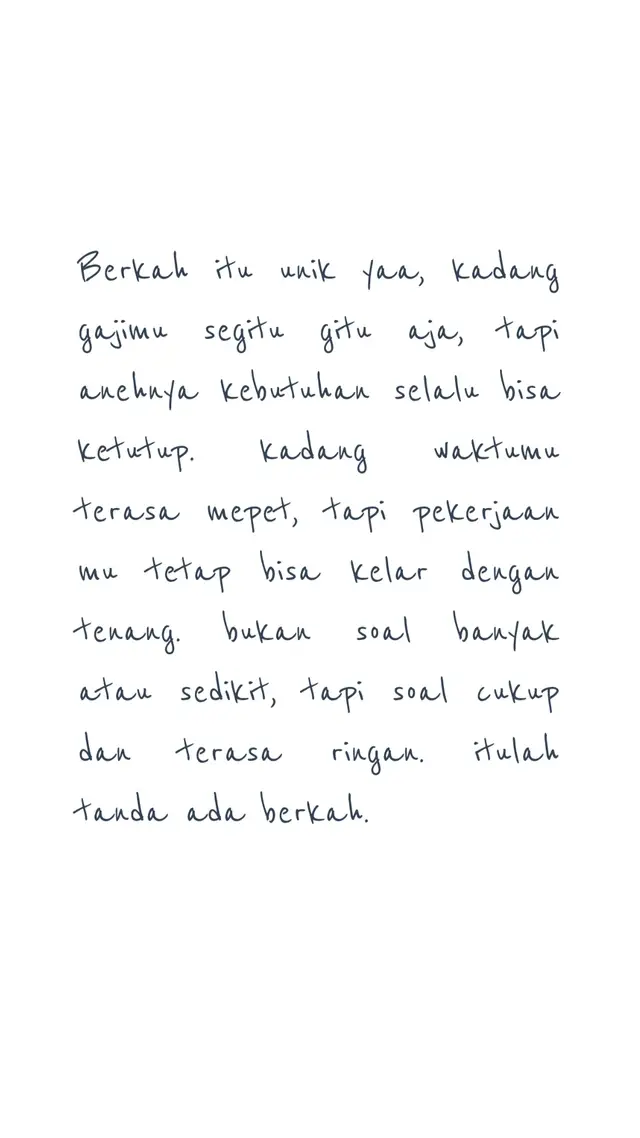 Berkah itu unik yaa, kadang
gajimu segitu gitu aja, tapi
anehnya kebutuhan selalu bisa
ketutup. kadang waktumu
terasa mepet, tapi pekerjaan
mu tetap bisa kelar dengan
tenang. bukan soal banyak
atau sedikit, tapi soal cukup
dan terasa ringan. itulah
tanda ada berkah.